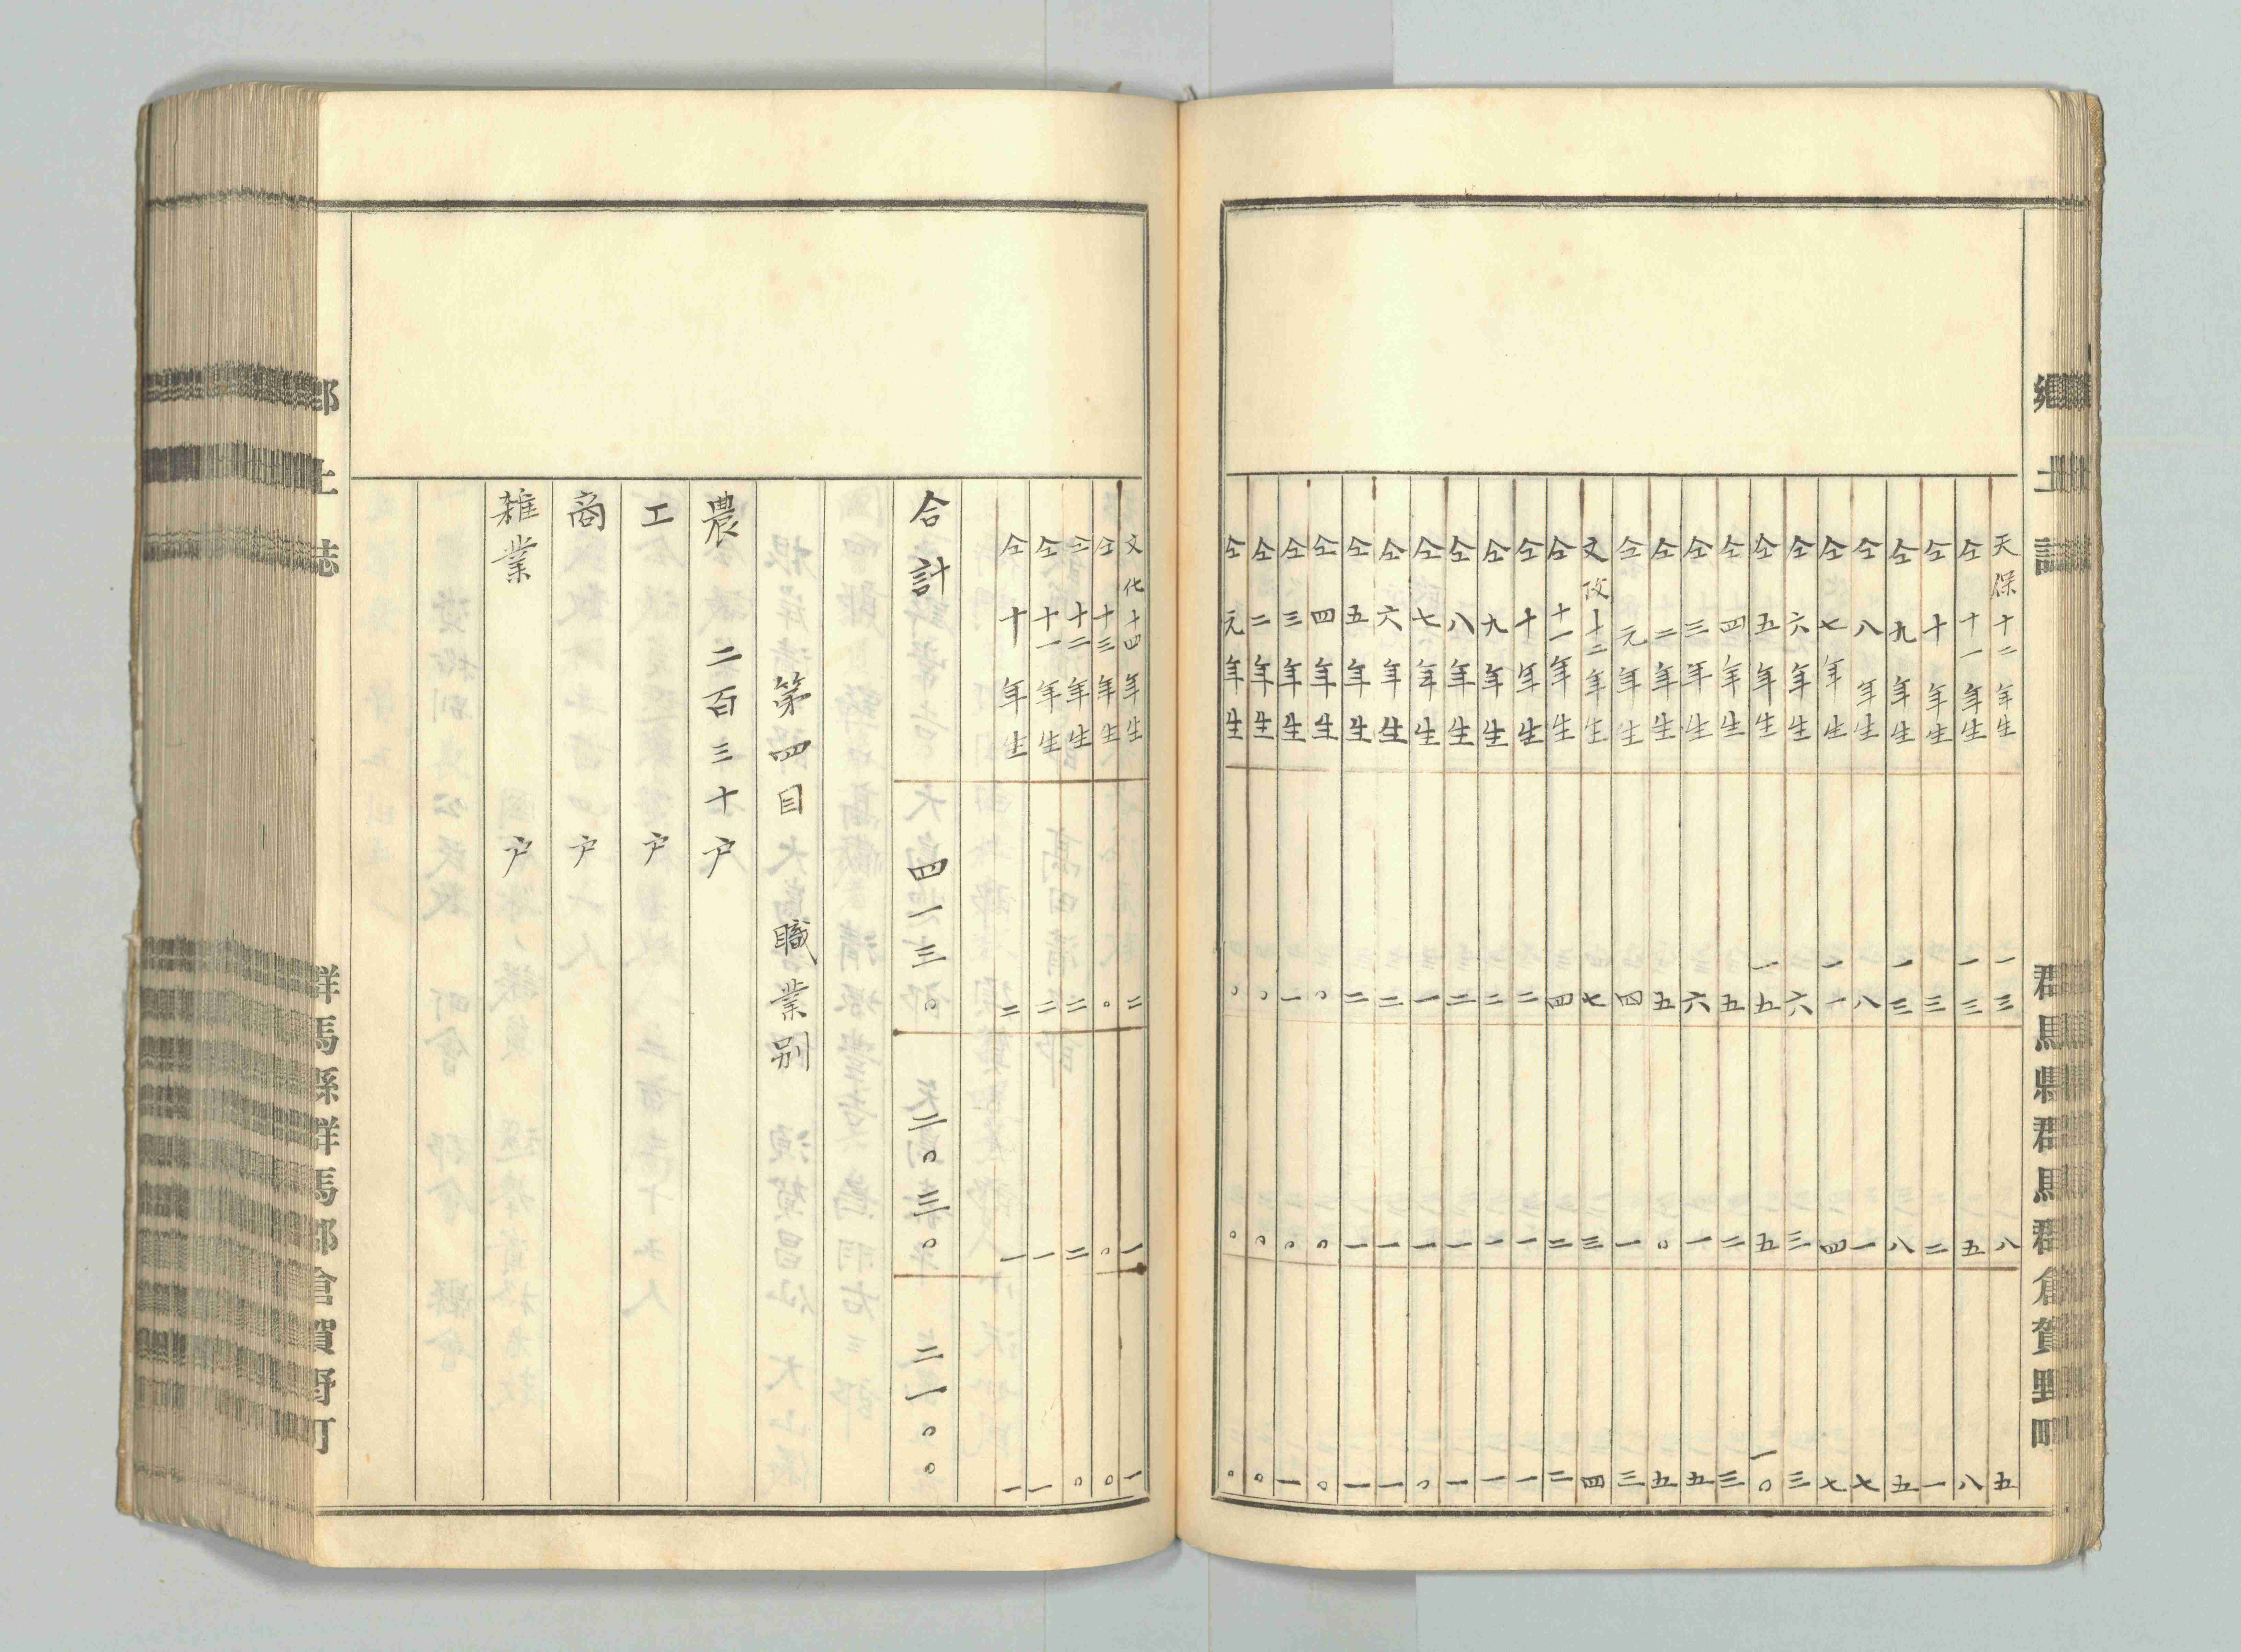 郷土誌
群馬縣群馬郡倉賀野町
天保十二年生 一三 八 五
仝十一年生 一三 五 八
仝十年生 三 二 一
仝九年生 一三 八 五
仝八年生 八 一 七
仝七年生 一一 四 七
仝六年生 六 三 三
仝五年生 一五 五 一〇
仝四年生 五 二 三
仝三年生 六 一 五
仝二年生 五 〇 五
仝元年生 四 一 三
文政十二年生 七 三 四
仝十一年生 四 二 二
仝十年生 二 一 一
仝九年生 二 一 一
仝八年生 二 一 一
仝七年生 一 一 〇
仝六年生 二 一 一
仝五年生 二 一 一
仝四年生 〇 〇 〇
仝三年生 一 〇 一
仝二年生 〇 〇 〇
仝元年生 〇 〇 〇
文化十四年生 二 一 一
仝十三年生 〇 〇 〇
仝十二年生 二 二 〇
仝十一年生 二 一 一
仝十年生 二 一 一
合計 四一三〇 二〇三〇 二一〇〇
第四目 職業別
農 二百三十戸
工 戸
商 戸
雑業 戸
郷土誌
群馬縣群馬郡倉賀野町